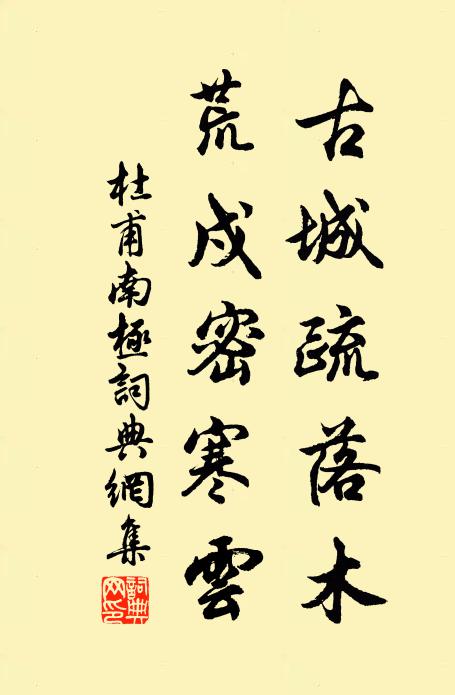 古城疏落木
荒戍密寒雲
杜甫南極詞典網集
詞典网印